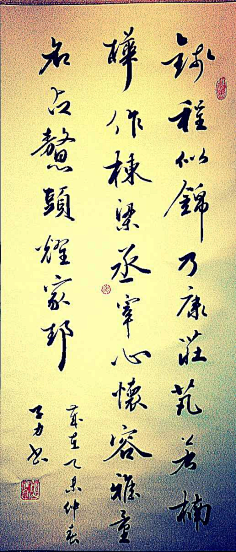 錢程似錦乃康莊芃若楠
樺作棟梁丞宰心懷容雅量
名占鰲頭耀家邦
歲在乙未仲春
力书